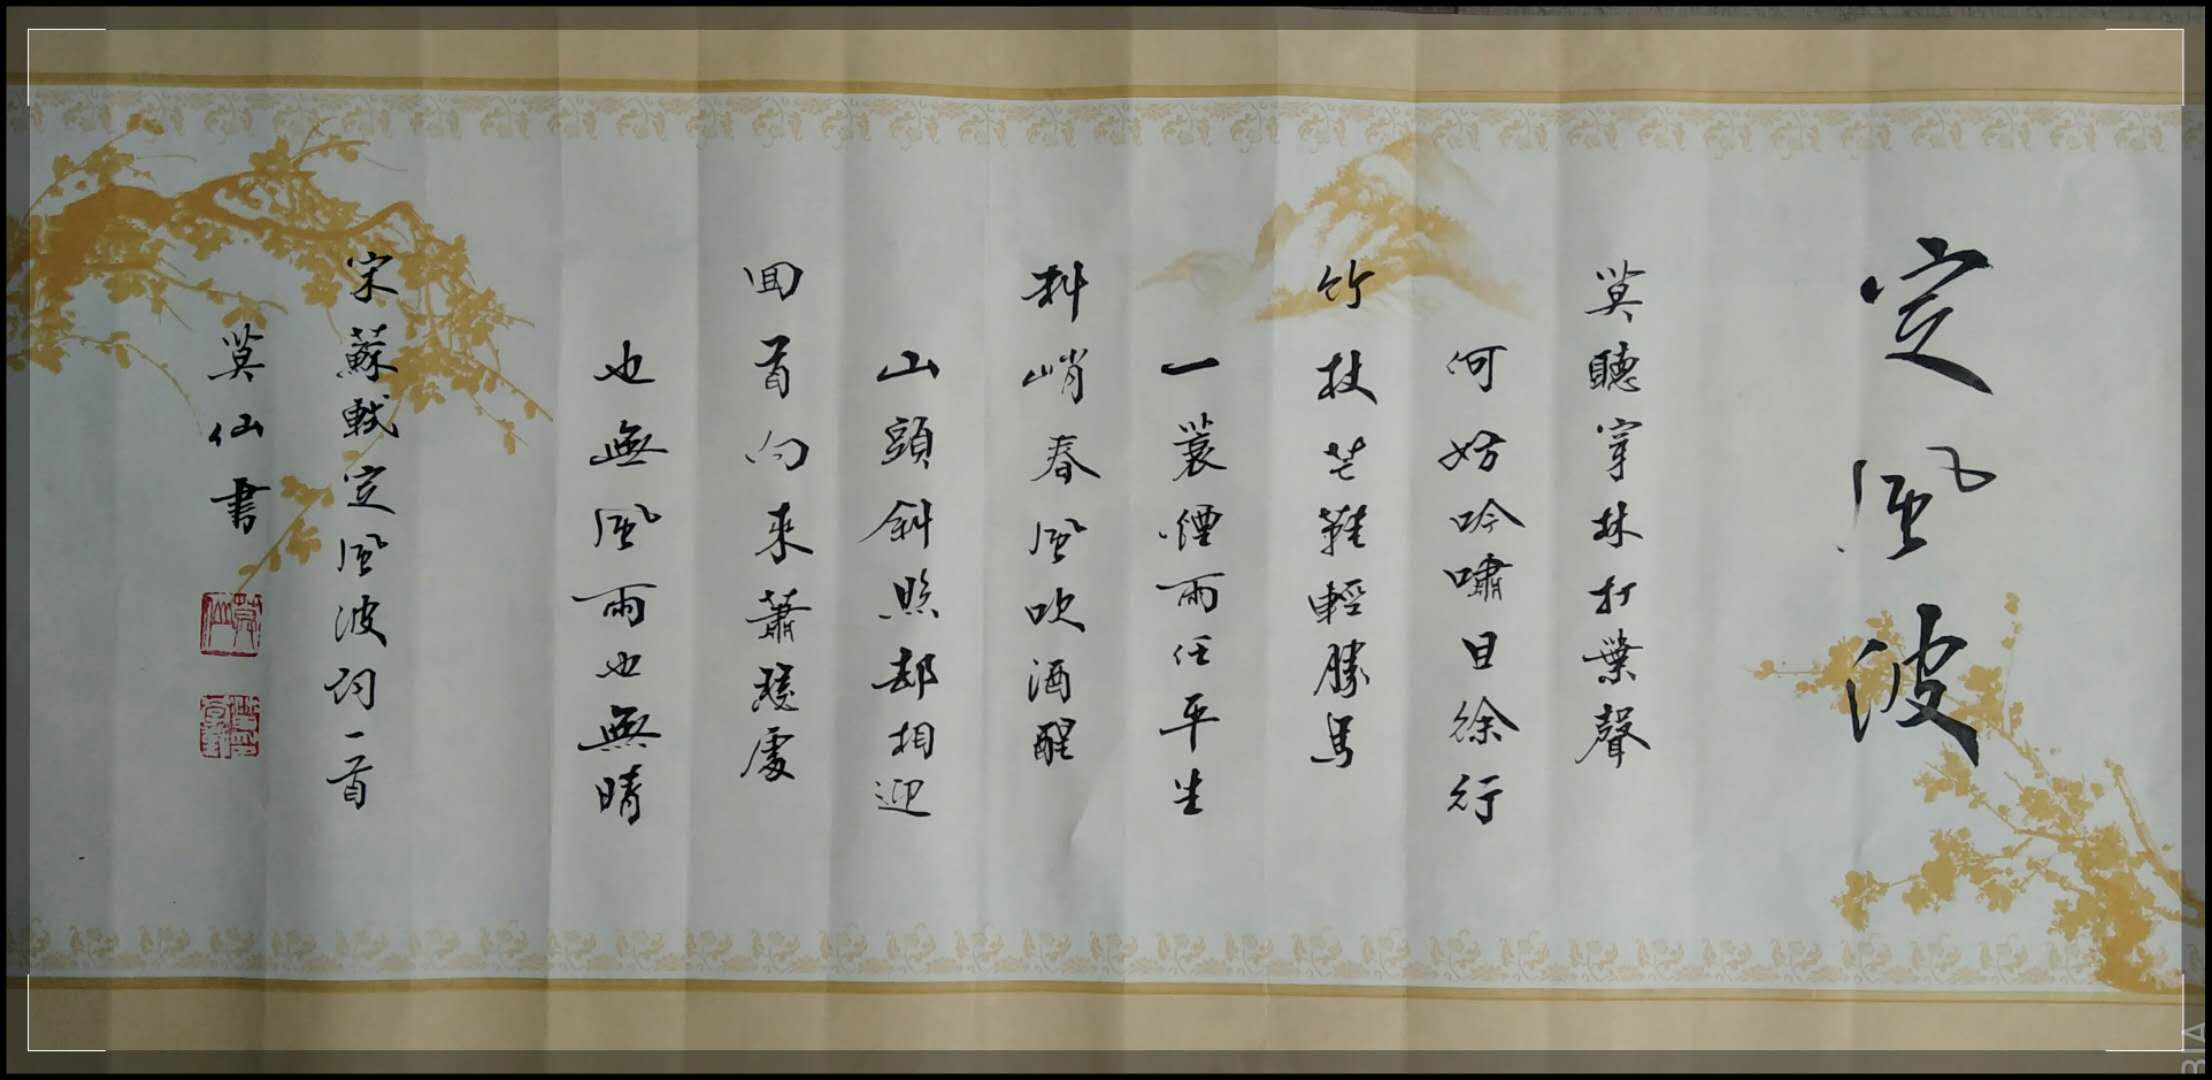 定風波
莫聽穿林打葉聲
何妨吟嘯且徐行
竹杖芒鞋輕勝馬
一蓑煙雨任平生
料峭春風吹酒醒
山頭斜照却相迎
回首向來蕭瑟處
也無風雨也無晴
宋蘇軾定風波詞一首
莫仙書
莫仙